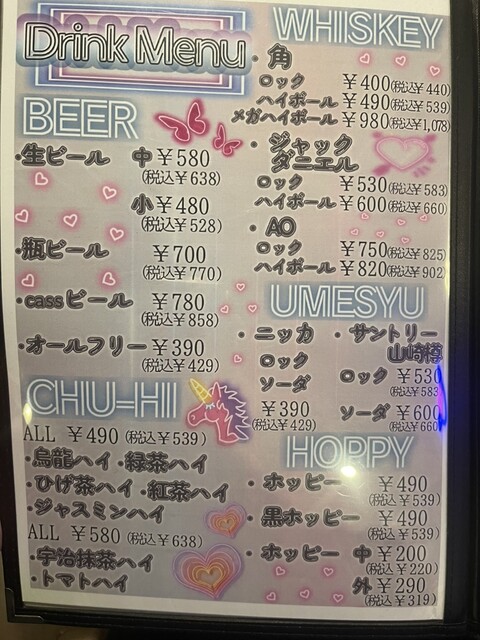 Drink Menu
BEER
・生ビール 中 ¥580
(税込¥638)
小 ¥480
(税込¥528)
・瓶ビール ¥700
(税込¥770)
・cassビール ¥780
(税込¥858)
・オールフリー ¥390
(税込¥429)
CHU-HI
ALL ¥490 (税込¥539)
・烏龍ハイ ・緑茶ハイ
・ひげ茶ハイ ・紅茶ハイ
・ジャスミンハイ
ALL ¥580 (税込¥638)
・宇治抹茶ハイ
・トマトハイ
WHISKEY
・角
ロック ¥400(税込¥440)
ハイボール ¥490(税込¥539)
メガハイボール ¥980(税込¥1,078)
・ジャック
ダニエル
ロック ¥530(税込¥583)
ハイボール ¥600(税込¥660)
・AO
ロック ¥750(税込¥825)
ハイボール ¥820(税込¥902)
UMESYU
・ニッカ
ロック
ソーダ
¥390
(税込¥429)
・サントリー
山崎樽
ロック ¥530
(税込¥583
ソーダ ¥600
(税込¥660
HOPPY
・ホッピー ¥490
(税込¥539)
・黒ホッピー ¥490
(税込¥539)
・ホッピー 中 ¥200
(税込¥220)
外 ¥290
(税込¥319)